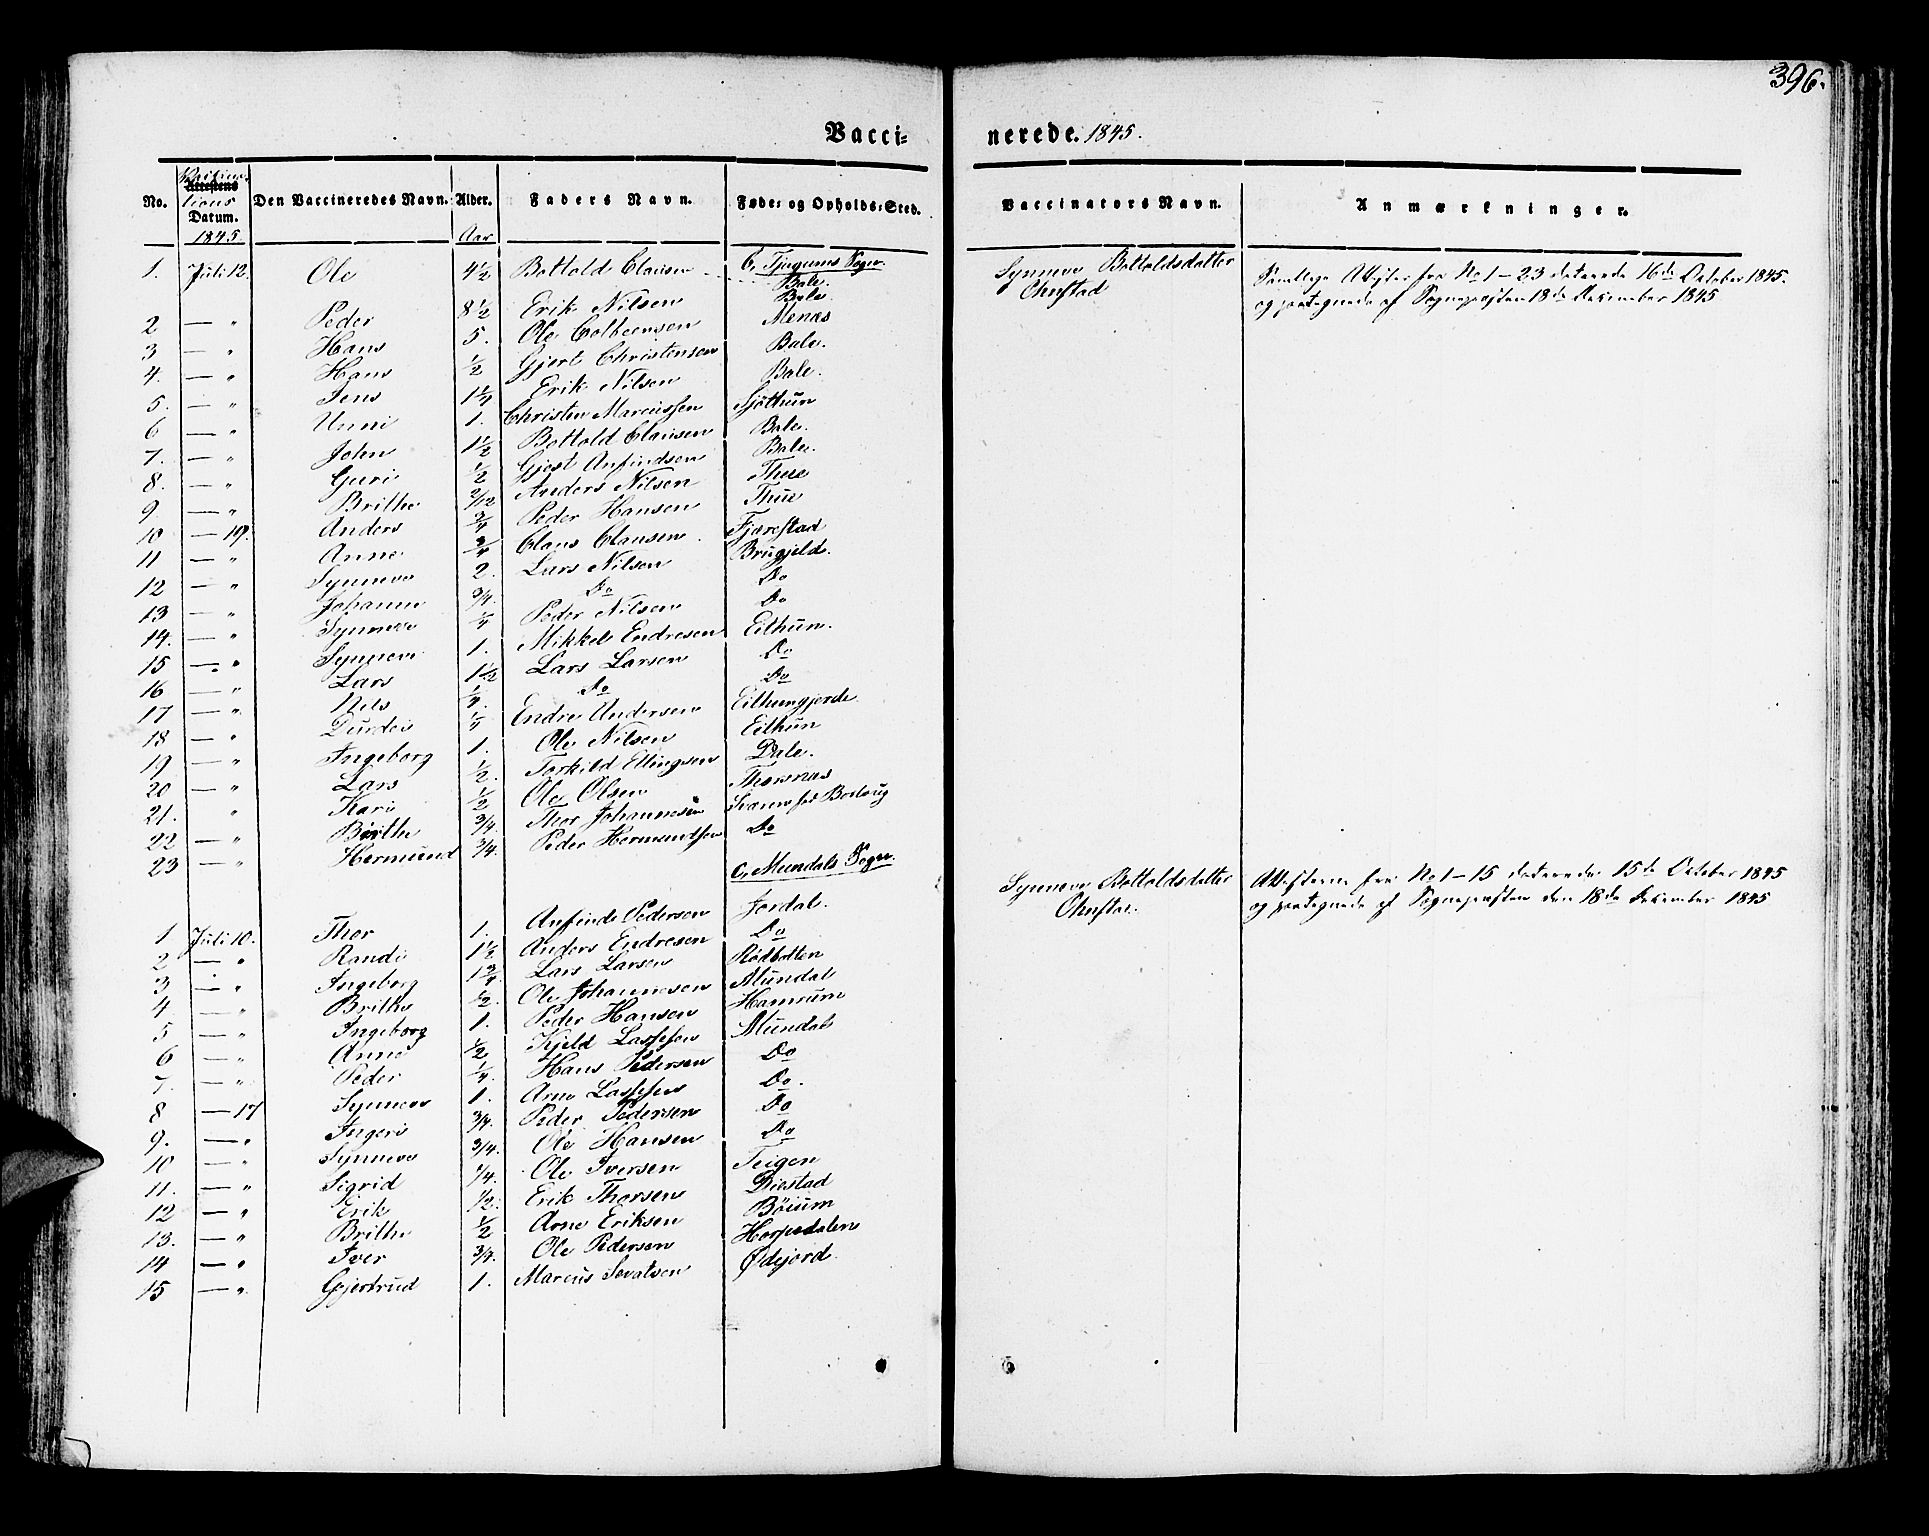 396.
Vacci=
nerede. 1845.
No. Attestens Datum. 1845. Den Vaccineredes Navn. Alder. Aar Faders Navn. Føde= og Opholds=Sted. Vaccinators Navn. Anmærkninger.
b, Tjugums Sogn.
1. Juli 12. Ole 4½ Bottold Clausen Bale. Synneve Bottoldsdatter Attester fra No 1-23 daterede 16de October 1845.
Ohnstad og paategnede af Sognepræsten 18de December 1845
2 — " Peder 8½ Erik Nilsen Bale
3 — " Hans 5. Ole Menæs
4. — " Hans ½ Gjert Christensen Bale.
5. — " Jens 1¼ Erik Nilsen Bale.
6 — " Unni 1. Christen Marcussen Sjøthun
7. — " John 1½ Bottold Clausen Bale.
8. — " Guri ½ Gjert Anfindsen Bale.
9. — " Brithe 2/12 Anders Nilsen
10 — 19. Anders ¾ Peder Hansen
11 — " Anne ¾ Claus Clausen Fjærestad
12 — " Synneve 2. Lars Nilsen Brugjeld.
13 — " Johanne ¾. Do Do
14. — " Synneve ¼ Peder Nilsen Do
15 — " Synneve 1. Mikkel Endresen Eithun.
16 — " Lars 1½ Lars Larsen Do
17 — " Nils ¼. Do Do
18 — " Durdei ¼ Endre Andersen Eithungjerde.
19 — " Ingeborg 1. Ole Nilsen Eithun
20 — " Lars ½. Torkild Ellingsen Dale.
21. " Kari ½ Ole Olsen Thorsnæs
22 — " Birthe ¾. Thor Johannesen
23 — " Hermund ¾. Peder Hermundsen Do
c, Mundals Sogn.
Synneve Bottoldsdatter Attesterne fra No 1-15 daterede 15de October 1845
Ohnstad. og paategnede af Sognepræsten den 18de December 1845
1 Juli 10. Thor 1. Anfind Pedersen Jordal.
2 — " Randi 1½ Anders Endresen Do
3 — " Ingeborg 1¾ Lars Larsen Rødbotten
4. — " Brithe ½. Ole Johannesen Mundal
5 — " Ingeborg 1. Peder Hansen Hamrum
6 — " Anne ½ Kjeld Lassesen Mundal
7. — " Peder ¼. Hans Pedersen Do
8 — 17 Synneve 1. Arne Lassesen Do.
9. — " Ingeri ¾. Peder Pedersen Do
10 — " Synneve ¾. Ole Hansen Do
11. — " Sigrid ¼. Ole Iversen Teigen
12 — " Erik ½. Erik Thorsen Distad
13. — " Brithe ½ Arne Eriksen Bøium
14 — " Iver ¾. Ole Pedersen Horpedalen
15 — " Gjertrud 1. Marcus Sevatsen Ødejord.